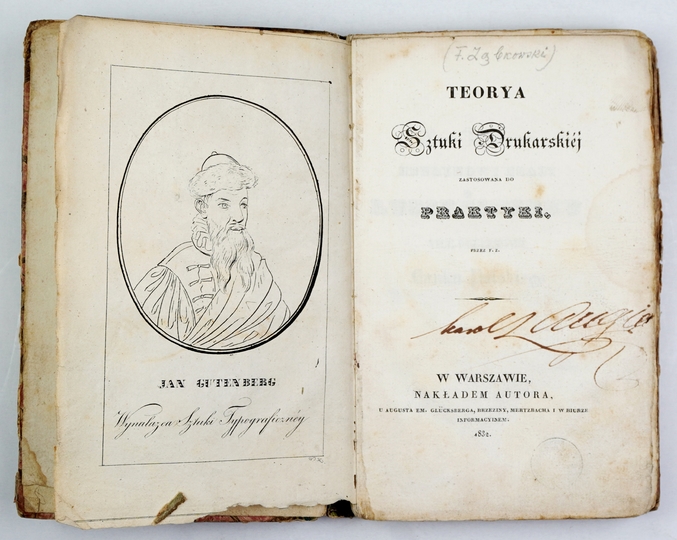 JAN GUTENBERG
Wynalazca Sztuki Typograficznéy
(F. Ząbkowski)
TEORYA
Sztuki Drukarskiéj
ZASTOSOWANA DO
PRAKTYKI,
PRZEZ F. Z.
Karol
W WARSZAWIE,
NAKŁADEM AUTORA,
U AUGUSTA EM. GLÜCKSBERGA, BRZEZINY, MERTZBACHA I W BIURZE
INFORMACYJNEM.
1832.